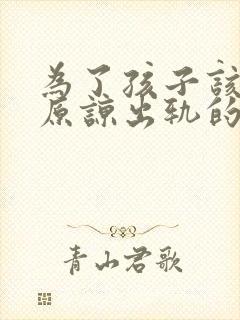 為了孩子該
原諒出軌的
青山君歌